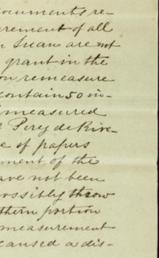 documents re-
urement of all
Swan are not
grant in the
on remeasure
contain 50 in-
measured
Percy de Rive-
e of papers
ment of the
ave not been
ossibly throw
thern portion
measurement
caused a dis-